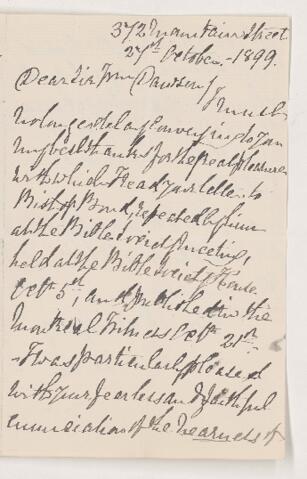 372 Mountain Street
27th October - 1899.
Dear Sir Wm Dawson,
I must
no longer delay conveying to you
my best thanks for the great pleasure
with which I read your letter to
Bishop Bond, repeated by him
at the Bible Society Meeting,
held at the Bible Society House,
Octr 5th, and published in the
Montreal Witness Octr 21st.
I was particularly pleased
with your fearless and faithful
enunciation of the nearness of